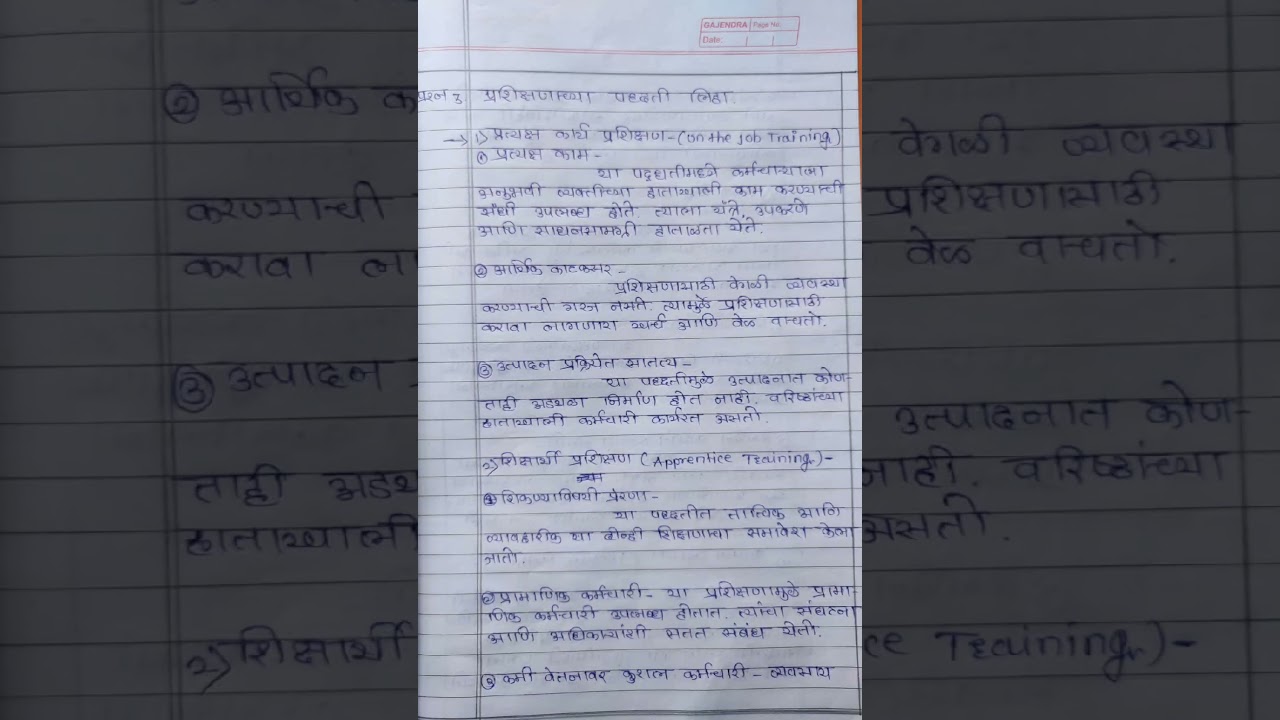 GAJENDRA Page No.
Date:
प्रश्न 3 प्रशिक्षणाच्या पद्धती लिहा.
→ 1) प्रत्यक्ष कार्य प्रशिक्षण - (On the Job Training)
① प्रत्यक्ष काम -
या पद्धतीमध्ये कर्मचाऱ्याला
अनुभवी व्यक्तीच्या हाताखाली काम करण्याची
संधी उपलब्ध होते. त्याला यंत्रे, उपकरणे
आणि साधनसामग्री हाताळता येते.
② आर्थिक काटकसर -
प्रशिक्षणासाठी वेगळी व्यवस्था
करण्याची गरज नसते. त्यामुळे प्रशिक्षणासाठी
करावा लागणारा खर्च आणि वेळ वाचतो.
③ उत्पादन प्रक्रियेत सातत्य -
या पद्धतीमुळे उत्पादनात कोण-
ताही अडथळा निर्माण होत नाही. वरिष्ठांच्या
हाताखाली कर्मचारी कार्यरत असतो.
2) शिक्षार्थी प्रशिक्षण (Apprentice Training) -
① शिकण्याविषयी प्रेरणा -
या पद्धतीत तात्विक आणि
व्यावहारिक या दोन्ही शिक्षणाचा समावेश केला
जातो.
② प्रामाणिक कर्मचारी - या प्रशिक्षणामुळे प्रामा-
णिक कर्मचारी उपलब्ध होतात. त्यांचा संघटना
आणि अधिकाऱ्यांशी सतत संबंध येतो.
③ कमी वेतनावर कुशल कर्मचारी - व्यवसाय